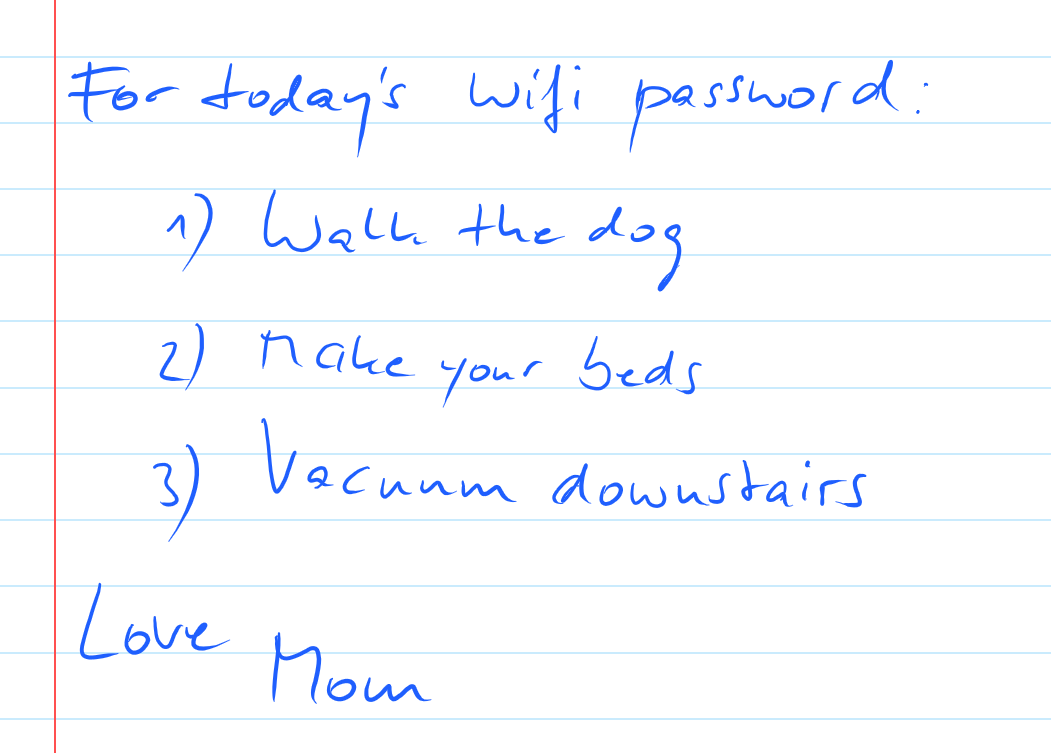 For today's Wifi password:
1) Walk the dog
2) Make your beds
3) Vacuum downstairs
Love
Mom